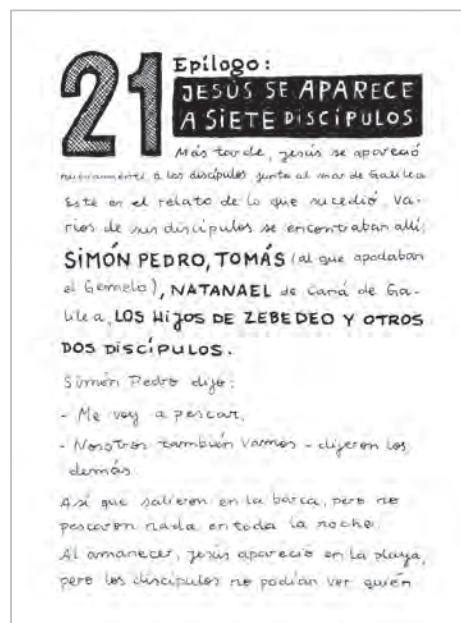 21
Epílogo:
JESÚS SE APARECE
A SIETE DISCÍPULOS
Más tarde, Jesús se apareció
nuevamente a los discípulos junto al mar de Galilea
Este es el relato de lo que sucedió. Va-
rios de sus discípulos se encontraban allí:
SIMÓN PEDRO, TOMÁS (al que apodaban
el Gemelo), NATANAEL de Caná de Ga-
lilea, LOS HIJOS DE ZEBEDEO Y OTROS
DOS DISCÍPULOS.
Simón Pedro dijo:
- Me voy a pescar.
- Nosotros también vamos - dijeron los
demás.
Así que salieron en la barca, pero no
pescaron nada en toda la noche.
Al amanecer, Jesús apareció en la playa,
pero los discípulos no podían ver quién